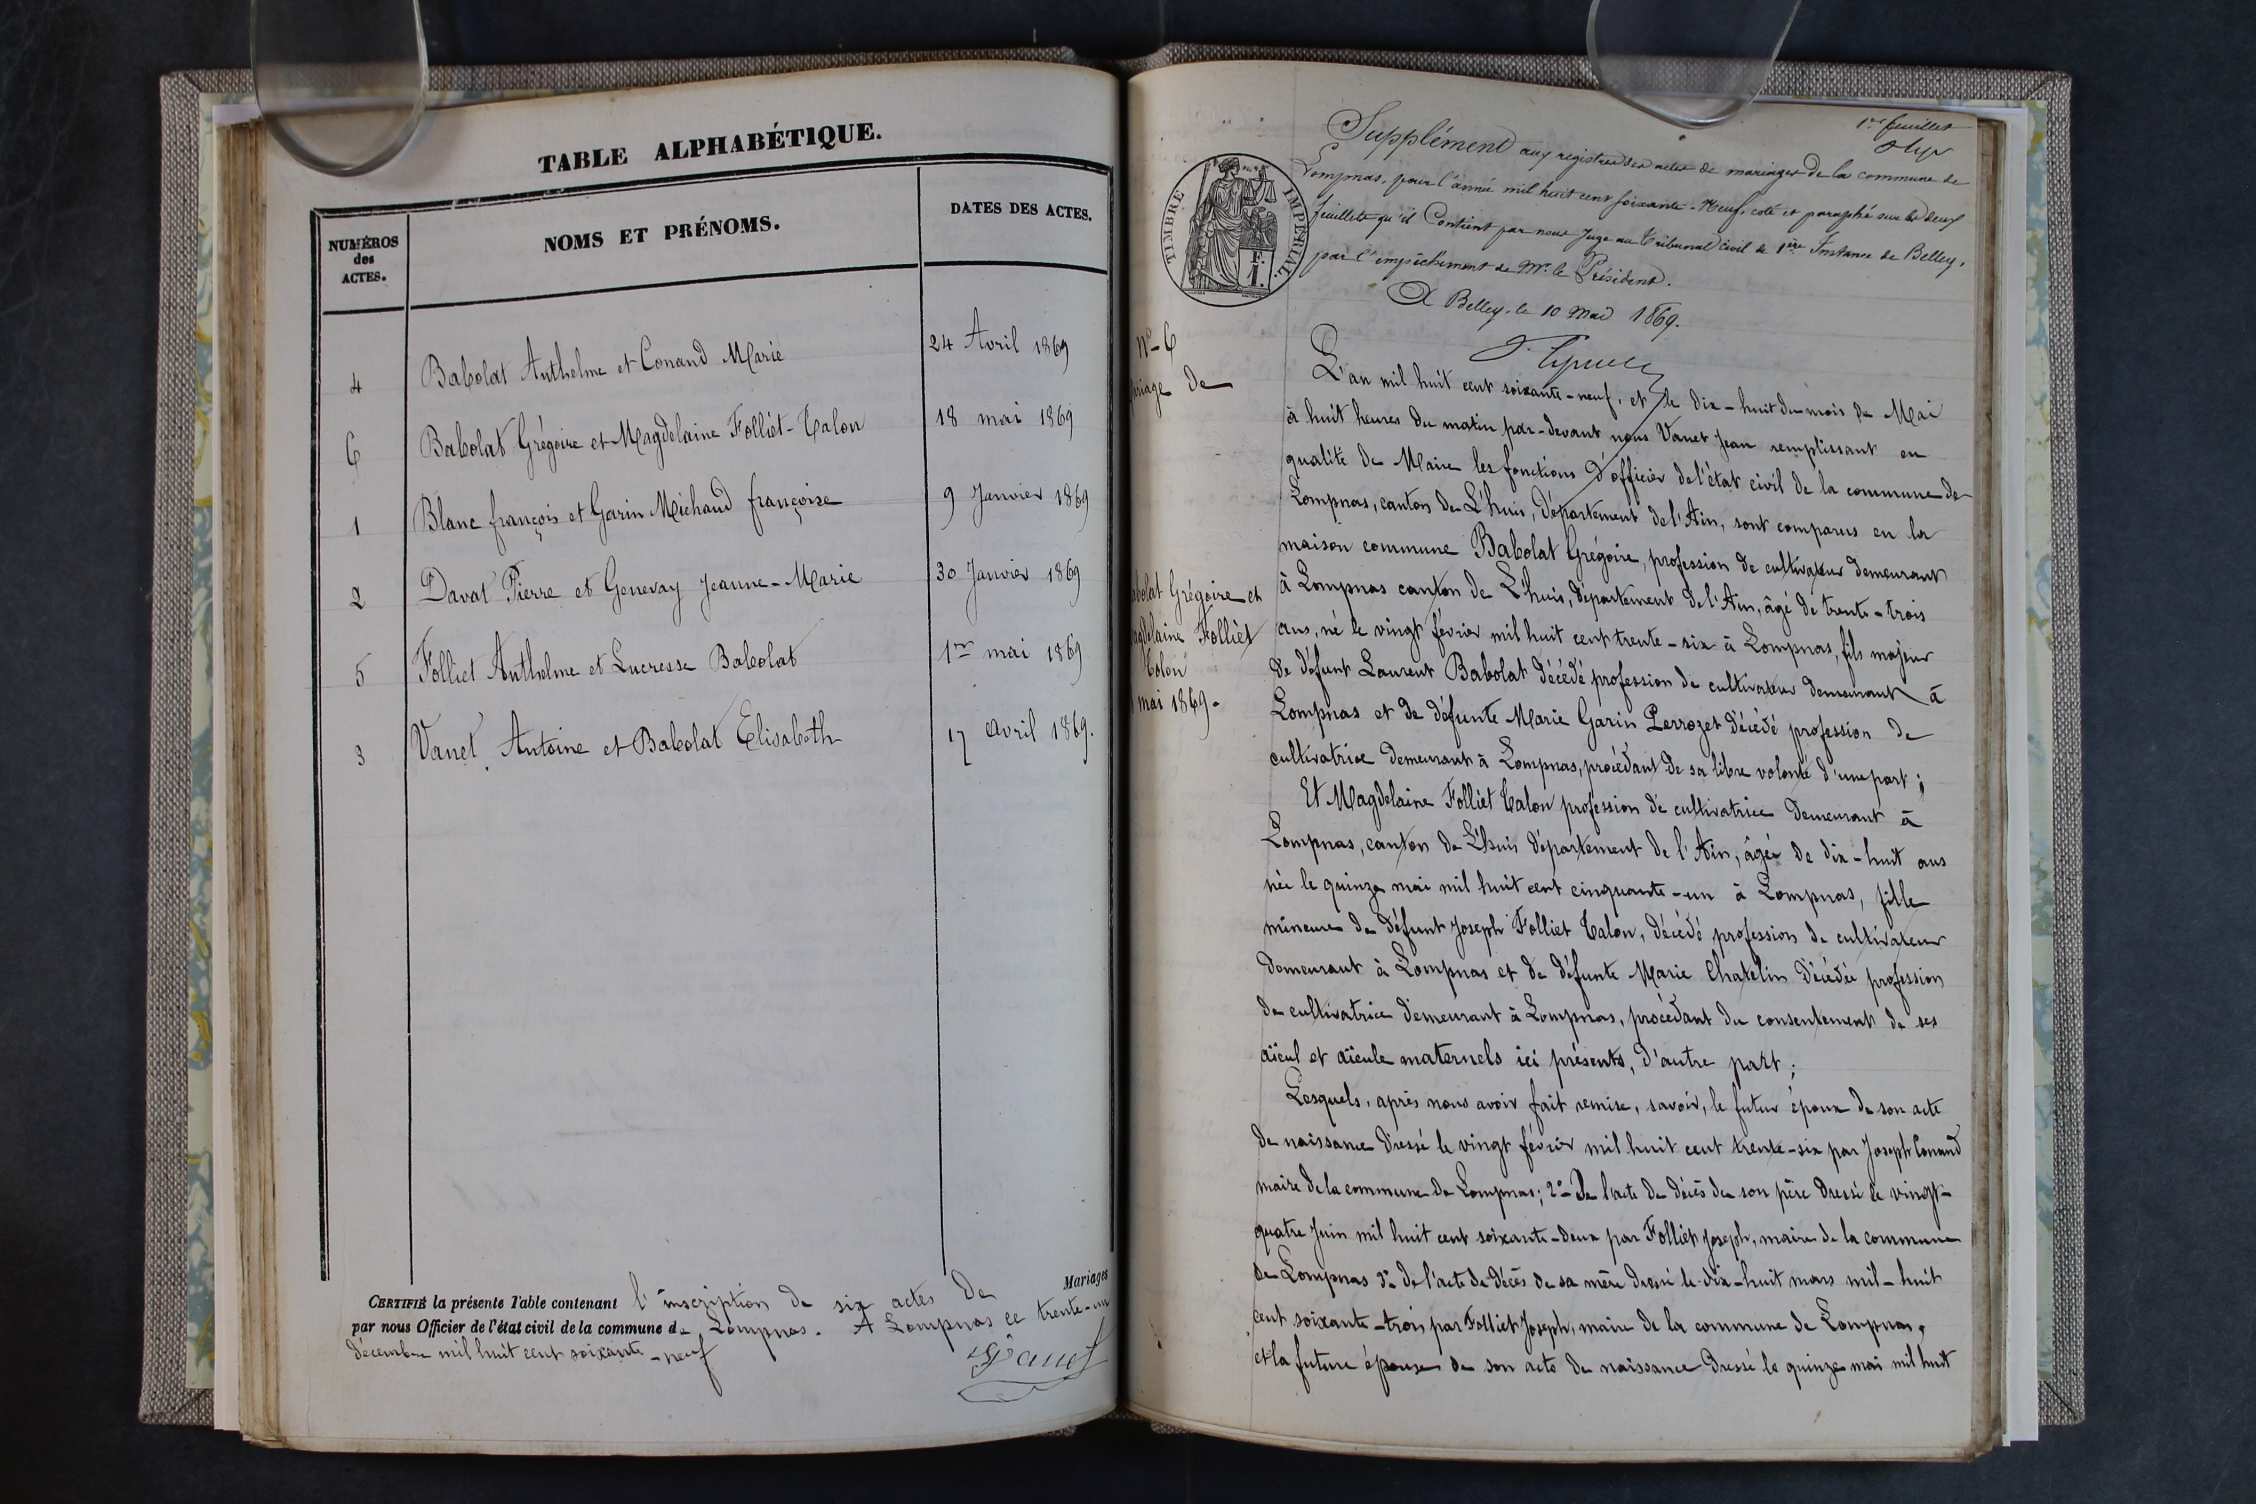 TABLE ALPHABÉTIQUE.
NUMÉROS
des
ACTES.
NOMS ET PRÉNOMS.
DATES DES ACTES.
4 Babolat Anthelme et Conand Marie 24 Avril 1869
6 Babolat Grégoire et Magdelaine Folliet-Talon 18 mai 1869
1 Blanc françois et Garin Michaud françoise 9 Janvier 1869
2 Davat Pierre et Genevay Jeanne-Marie 30 Janvier 1869
5 Folliet Anthelme et Lucresse Babolat 1er mai 1869
3 Vanet Antoine et Babolat Elisabeth 17 avril 1869.
Mariages
CERTIFIÉ la présente Table contenant l'inscription de six actes de
par nous Officier de l'état civil de la commune de Lompnas. A Lompnas ce trente-un
décembre mil huit cent soixante-neuf
Vanet
1er feuillet
Supplément aux registres des actes de mariages de la commune de
Lompnas, pour l'année mil huit cent soixante-Neuf, coté et paraphé sur les deux
feuillets qu'il Contient par nous Juge au Tribunal civil de 1ère Instance de Belley,
par l'empêchement de Mr. le Président.
A Belley, le 10 Mai 1869.
TIMBRE IMPÉRIAL.
F.
I.
No-6
riage de
abolat Grégoire et
agdelaine Folliet
Talon
mai 1869.
L'an mil huit cent soixante-neuf, et le dix-huit du mois de Mai
à huit heures du matin par-devant nous Vanet Jean remplissant en
qualité de Maire les fonctions d'officier de l'état civil de la commune de
Lompnas, canton de L'huis, département de l'Ain, sont comparus en la
maison commune Babolat Grégoire, profession de cultivateur demeurant
à Lompnas canton de L'huis, département de l'Ain, âgé de trente-trois
ans, né le vingt février mil huit cent trente-six à Lompnas, fils majeur
de défunt Laurent Babolat décédé profession de cultivateur demeurant à
Lompnas et de défunte Marie Garin Perrozet décédé profession de
cultivatrice demeurant à Lompnas, procédant de sa libre volonté d'une part;
Et Magdelaine Folliet Talon profession de cultivatrice demeurant à
Lompnas, canton de L'huis département de l'Ain, âgée de dix-huit ans
née le quinze mai mil huit cent cinquante-un à Lompnas, fille
mineure de défunt Joseph Folliet Talon, décédé profession de cultivateur
demeurant à Lompnas et de défunte Marie Chatelin décédée profession
de cultivatrice demeurant à Lompnas, procédant du consentement de ses
aïeul et aïeule maternels ici présents, d'autre part;
Lesquels, après nous avoir fait remise, savoir, le futur époux de son acte
de naissance dressé le vingt février mil huit cent trente-six par Joseph Conand
maire de la commune de Lompnas; 2o De l'acte de décès de son père dressé le vingt-
quatre Juin mil huit cent soixante-deux par Folliet Joseph, maire de la commune
de Lompnas 3o de l'acte de décès de sa mère dressé le dix-huit mars mil-huit
cent soixante-trois par Folliet Joseph, maire de la commune de Lompnas,
et la future épouse de son acte de naissance dressé le quinze mai mil huit